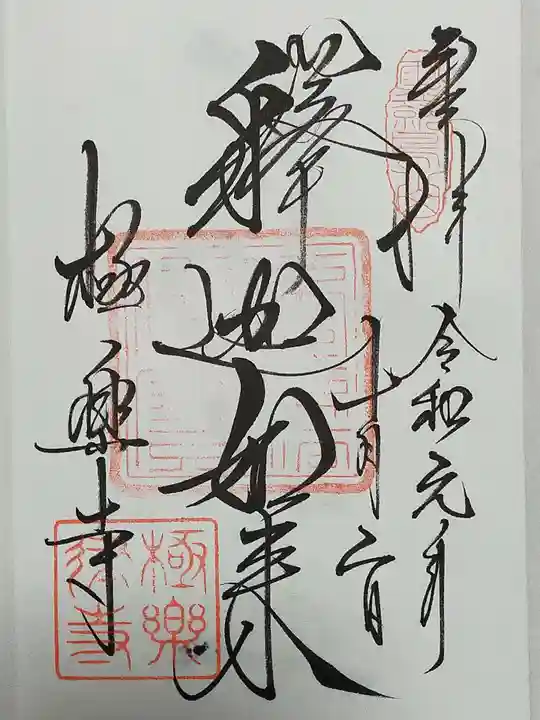 奉拝
令和元年
十月二日
釋迦如来
極楽寺
極樂